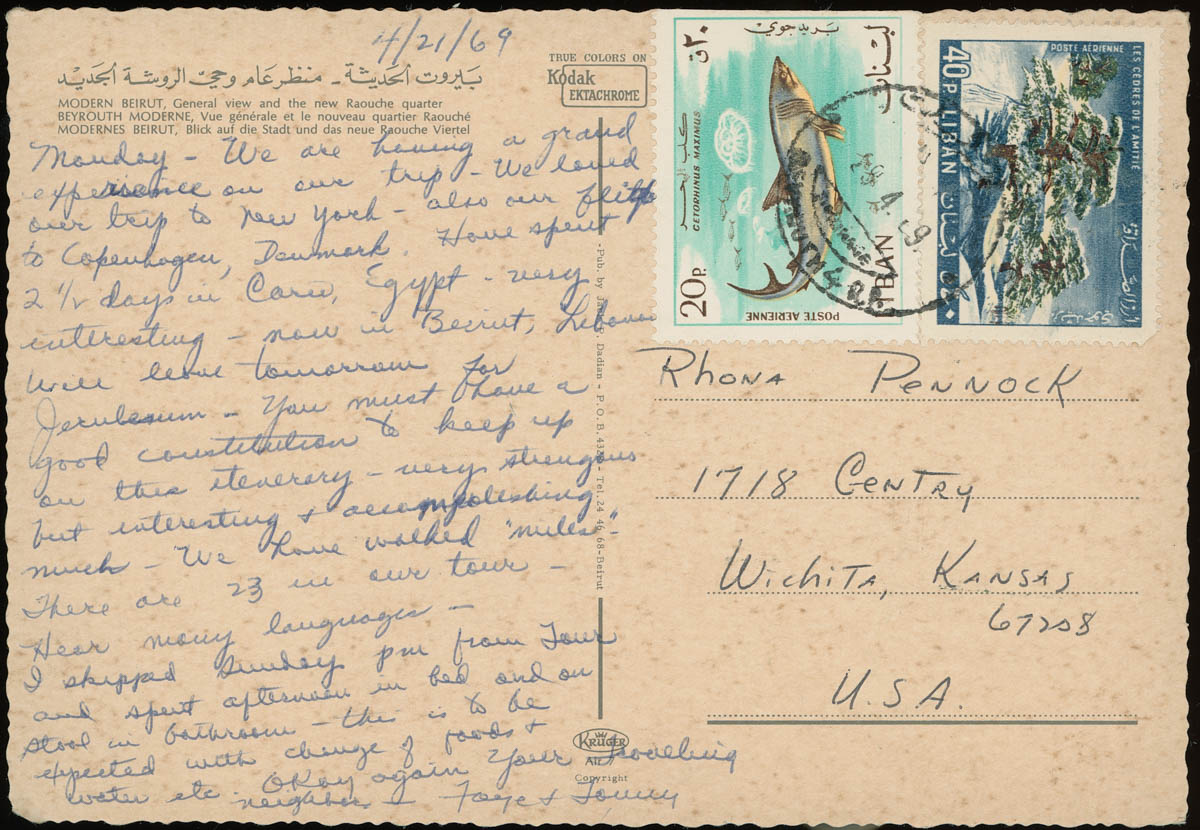 4/21/69
بيروت الحديثة - منظر عام وحي الروشة الجديد
MODERN BEIRUT, General view and the new Raouche quarter
BEYROUTH MODERNE, Vue générale et le nouveau quartier Raouché
MODERNES BEIRUT, Blick auf die Stadt und das neue Raouche Viertel
TRUE COLORS ON
Kodak
EKTACHROME
Monday - We are having a grand
experience on our trip - We loved
our trip to New York - also our flight
to Copenhagen, Denmark. Have spent
2 1/2 days in Cario, Egypt - very
interesting - now in Beirut, Lebanon
Will leave tomorrow for
Jerulesum - You must have a
good constitution to keep up
on this itenerary - very strengous
but interesting & accompolishing
much - We have walked "miles" -
There are 23 in our tour -
Hear many languages -
I skipped Sunday pm from Tour
and spent afternoon in bed and on
stool in bathroom - this is to be
expected with change of foods &
water etc. OKay again Your traveling
neighbors - Faye & Tommy
-Pub. by Dadian - P.O.B. - Tel. 24 46 68-Beirut
KRÜGER
Air
Copyright
٢٠ق
بريد جوي
لبنان
كلب بحر
CETORHINUS MAXIMUS
20p.
LIBAN
POSTE AERIENNE
POSTE AÉRIENNE
LES CÈDRES DE L'AMITIÉ
40P LIBAN
لبنان
بريد جوي
Rhona Pennock
1718 Gentry
Wichita, Kansas
67208
U.S.A.